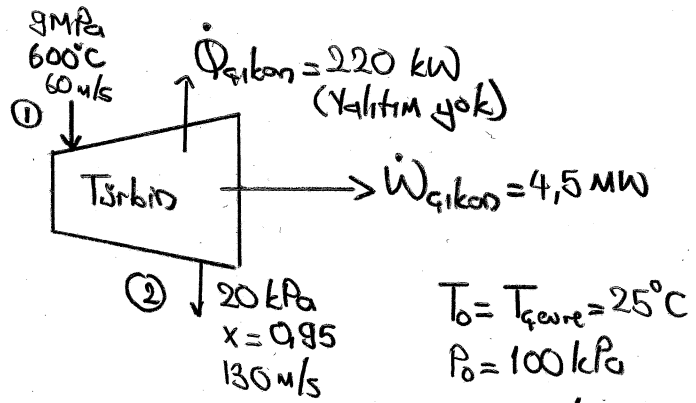 9MPa
600°C
60m/s
①
Q̇çıkan = 220 kW
(Yalıtım yok)
Türbin
Ẇçıkan = 4,5 MW
②
20 kPa
x = 0,95
130 m/s
T₀ = Tçevre = 25°C
P₀ = 100 kPa